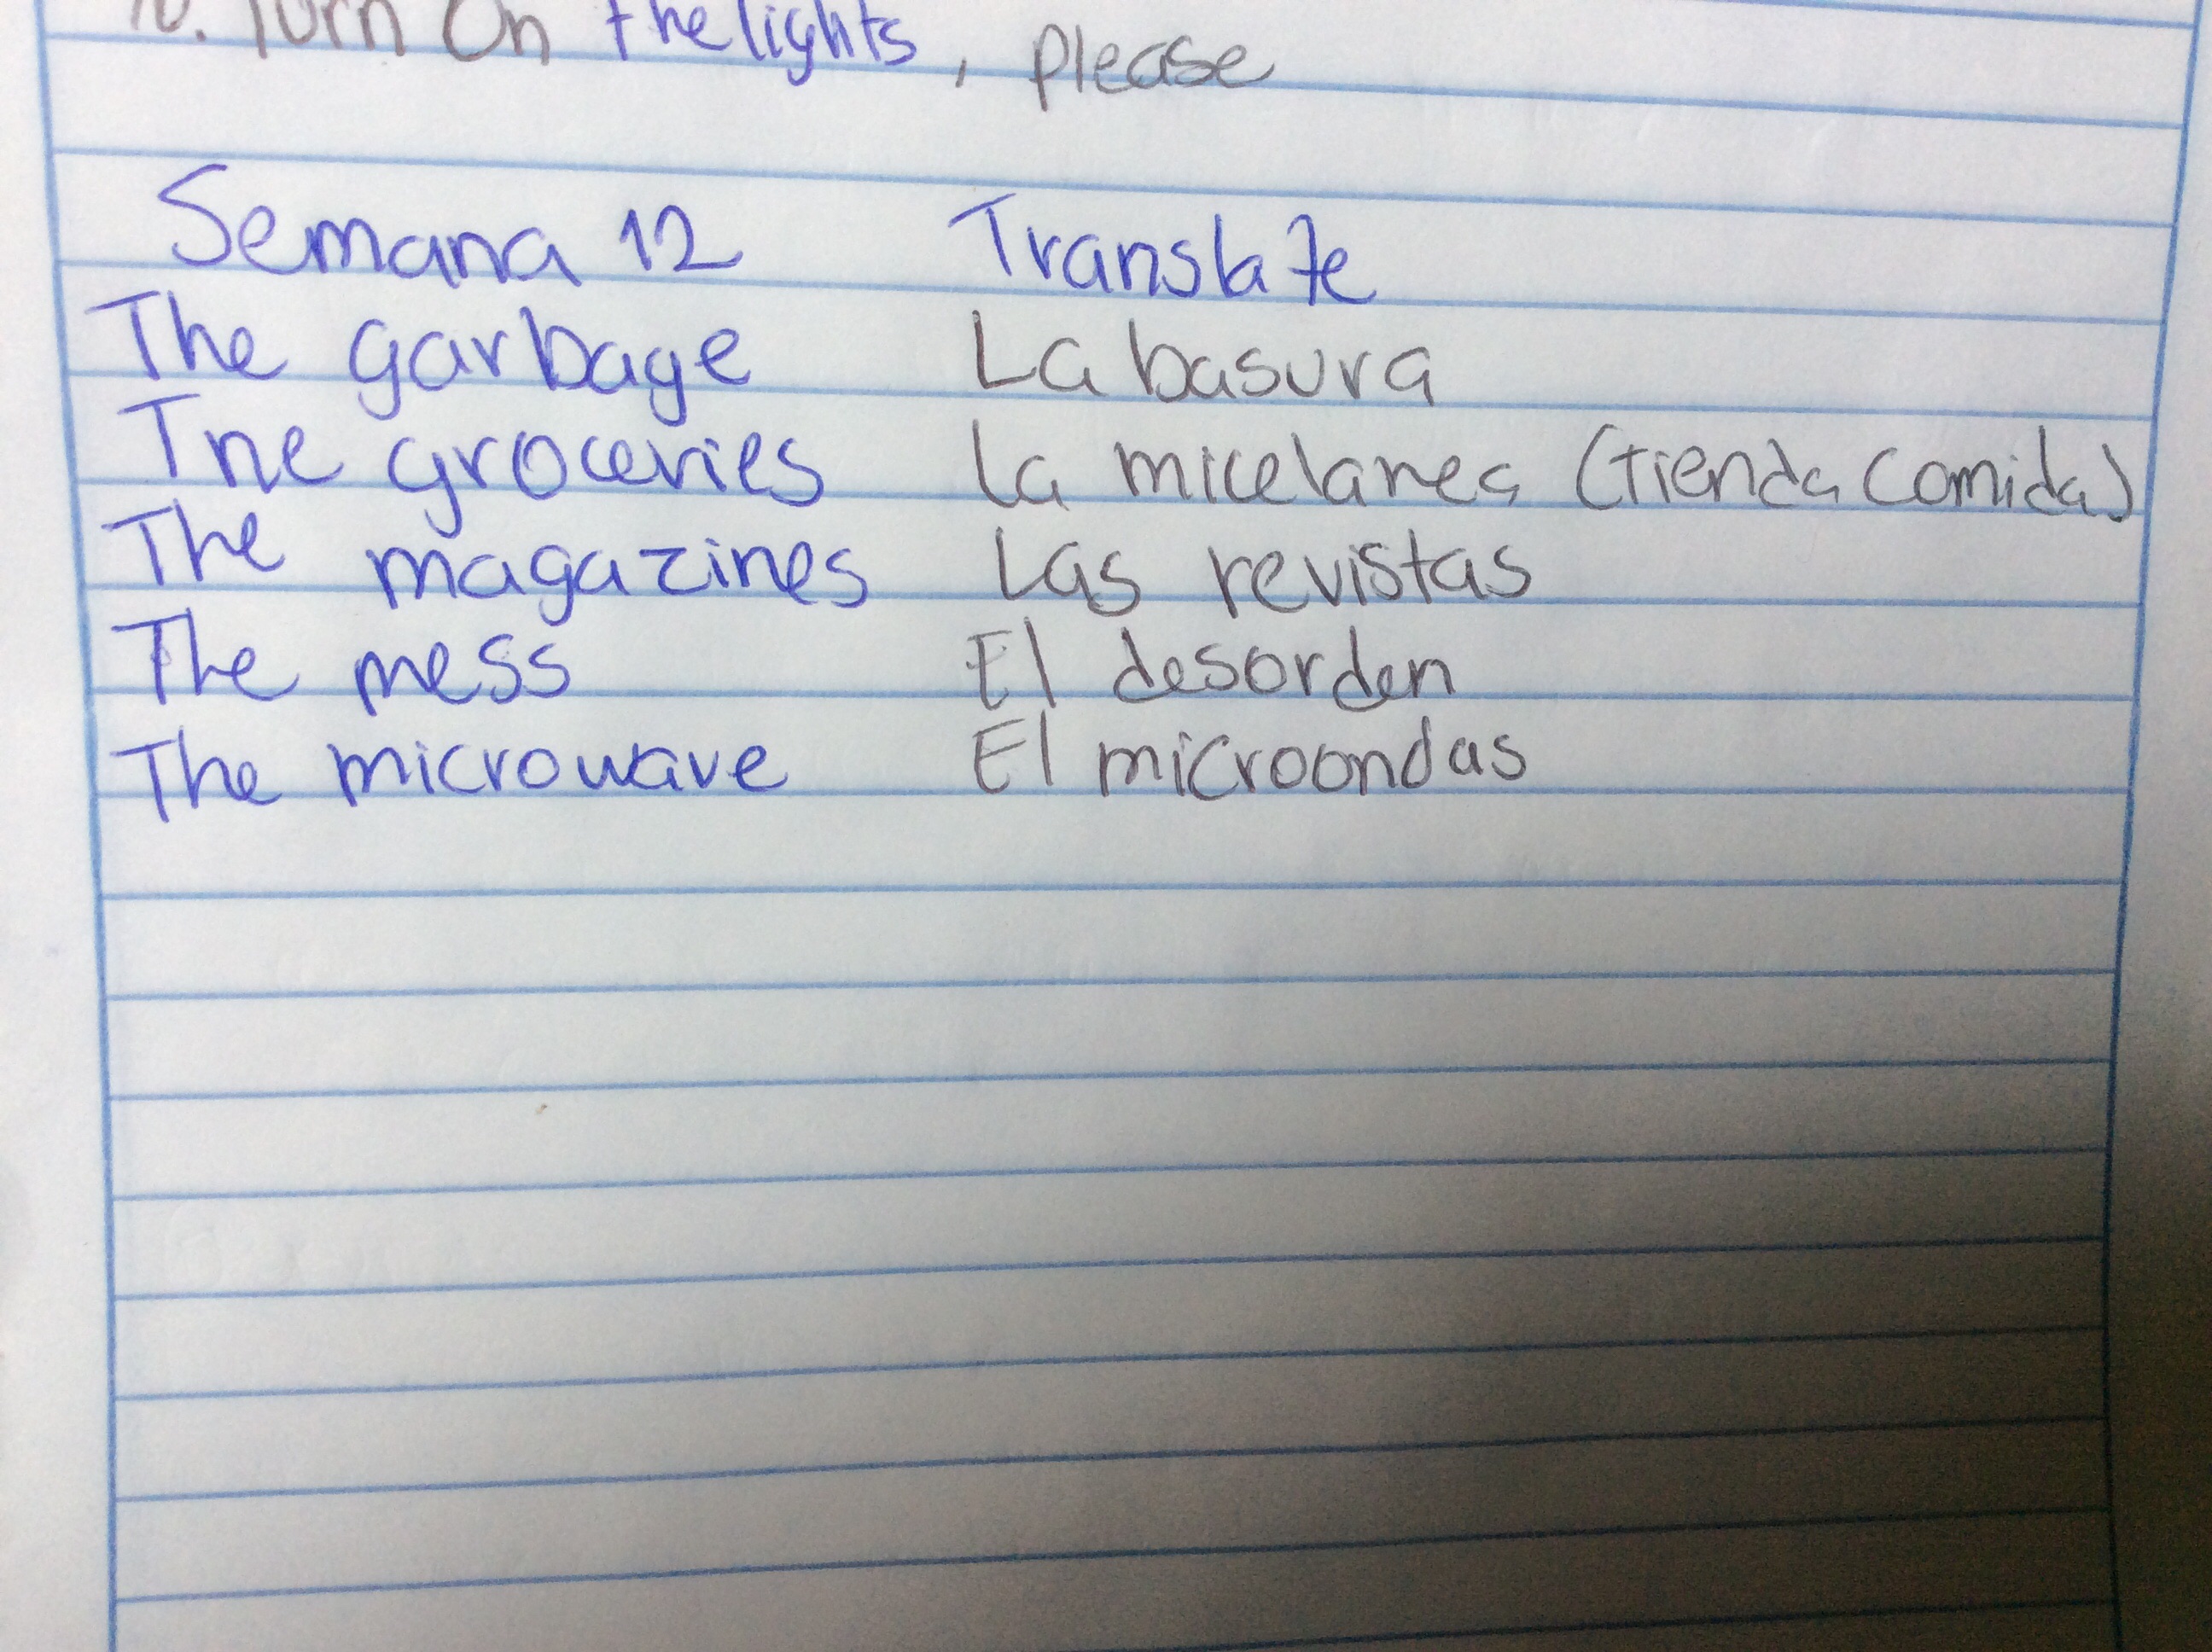 10. Turn On the lights, please
Semana 12 Translate
The garbage La basura
The groceries La micelanea (tienda comida)
The magazines Las revistas
The mess El desorden
The microwave El microondas